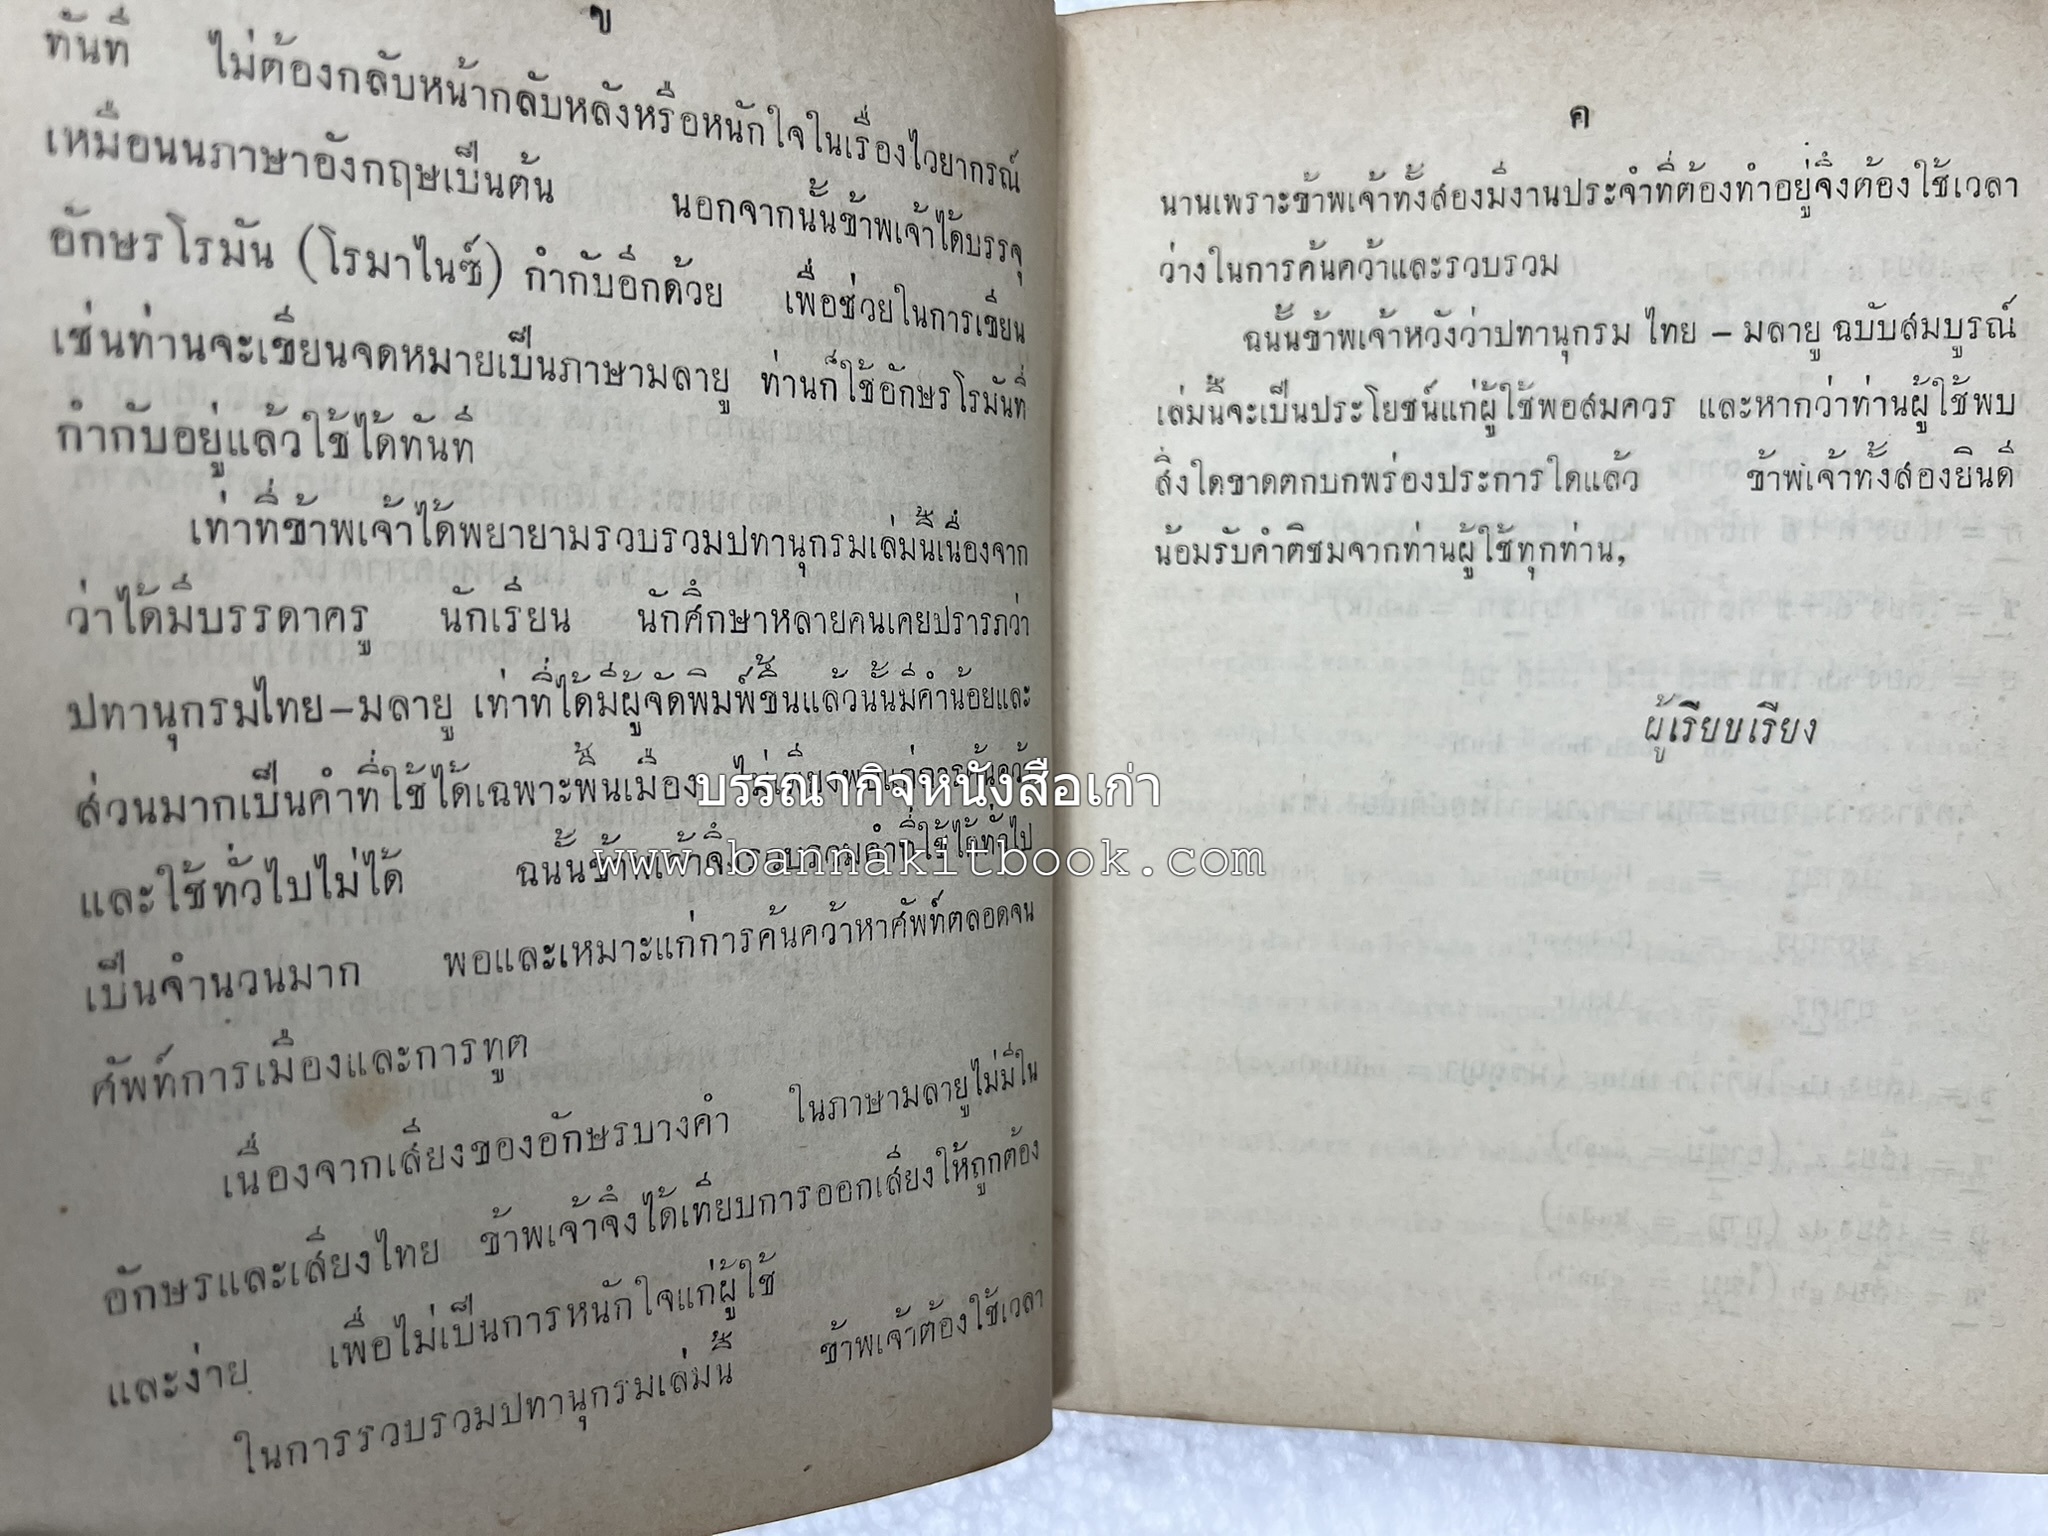 ข
ทันที ไม่ต้องกลับหน้ากลับหลังหรือหนักใจในเรื่องไวยากรณ์
เหมือนนภาษาอังกฤษเป็นต้น นอกจากนั้นข้าพเจ้าได้บรรจุ
อักษรโรมัน (โรมาไนซ์) กำกับอีกด้วย เพื่อช่วยในการเขียน
เช่นท่านจะเขียนจดหมายเป็นภาษามลายู ท่านก็ใช้อักษรโรมันที่
กำกับอยู่แล้วใช้ได้ทันที
เท่าที่ข้าพเจ้าได้พยายามรวบรวมปทานุกรมเล่มนี้เนื่องจาก
ว่าได้มีบรรดาครู นักเรียน นักศึกษาหลายคนเคยปรารภว่า
ปทานุกรมไทย-มลายู เท่าที่ได้มีผู้จัดพิมพ์ขึ้นแล้วนั้นมีคำน้อยและ
ส่วนมากเป็นคำที่ใช้ได้เฉพาะพื้นเมือง ไม่เพียงพอแก่การค้นคว้า
และใช้ทั่วไปไม่ได้ ฉนั้นข้าพเจ้าจึงรวบรวมคำที่ใช้ได้ทั่วไป
เป็นจำนวนมาก พอและเหมาะแก่การค้นคว้าหาศัพท์ตลอดจน
ศัพท์การเมืองและการทูต
เนื่องจากเสียงของอักษรบางคำ ในภาษามลายูไม่มีใน
อักษรและเสียงไทย ข้าพเจ้าจึงได้เทียบการออกเสียงให้ถูกต้อง
และง่าย เพื่อไม่เป็นการหนักใจแก่ผู้ใช้
ในการรวบรวมปทานุกรมเล่มนี้ ข้าพเจ้าต้องใช้เวลา
ค
นานเพราะข้าพเจ้าทั้งสองมีงานประจำที่ต้องทำอยู่จึงต้องใช้เวลา
ว่างในการค้นคว้าและรวบรวม
ฉนั้นข้าพเจ้าหวังว่าปทานุกรม ไทย - มลายู ฉบับสมบูรณ์
เล่มนี้จะเป็นประโยชน์แก่ผู้ใช้พอสมควร และหากว่าท่านผู้ใช้พบ
สิ่งใดขาดตกบกพร่องประการใดแล้ว ข้าพเจ้าทั้งสองยินดี
น้อมรับคำติชมจากท่านผู้ใช้ทุกท่าน,
ผู้เรียบเรียง
บรรณากิจหนังสือเก่า
www.bannakitbook.com